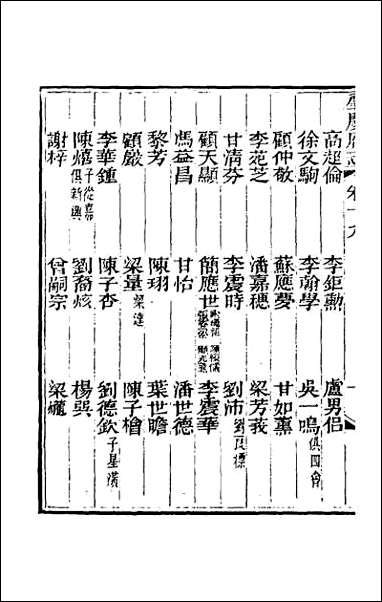 肇慶府志 卷十九
高超倫 李鉅勳 盧男侶
徐文駒 李翰學 吳一鳴俱四會
顧仲敬 蘇應夢 甘如薰
李苑芝 潘嘉穗 梁芳莪
甘清芬 李震時 劉沛
顧天顯 簡應世 李震華
馮益昌 甘怡 潘世德
黎芳 陳珝 葉世瞻
顧嚴 梁量 陳子檜
李華鍾 陳子杏 劉德欽子星
陳熺子從 俱新興 劉裔炫 楊巽
謝梓 曾嗣宗 梁